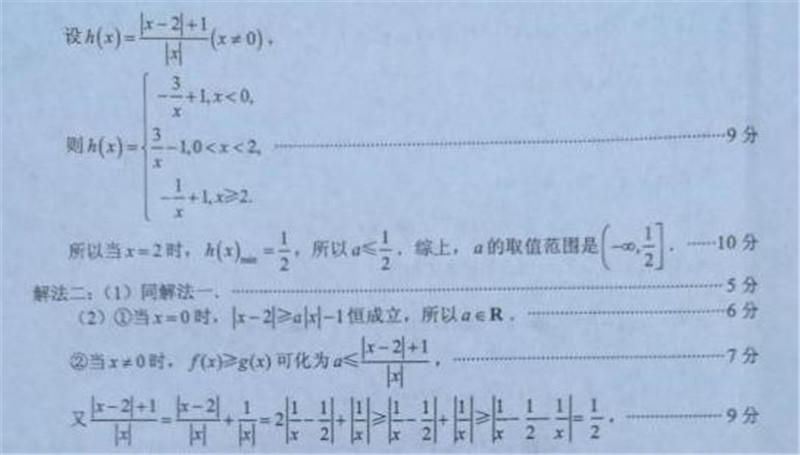 设h(x)=\frac{|x-2|+1}{|x|}(x≠0),
则h(x)=\begin{cases}-\frac{3}{x}+1,x<0,\\ \frac{3}{x}-1,0<x<2,\\ -\frac{1}{x}+1,x≥2.\end{cases} ……9分
所以当x=2时,h(x)_{min}=\frac{1}{2},所以a≤\frac{1}{2}.综上,a的取值范围是(-∞,\frac{1}{2}].……10分
解法二:(1)同解法一.……5分
(2)①当x=0时,|x-2|≥a|x|-1恒成立,所以a∈R.……6分
②当x≠0时,f(x)≥g(x)可化为a≤\frac{|x-2|+1}{|x|},……7分
又\frac{|x-2|+1}{|x|}=\frac{|x-2|}{|x|}+\frac{1}{|x|}=2|\frac{1}{x}-\frac{1}{2}|+|\frac{1}{x}|≥|\frac{1}{x}-\frac{1}{2}|+|\frac{1}{x}|≥|\frac{1}{x}-\frac{1}{2}-\frac{1}{x}|=\frac{1}{2},……9分